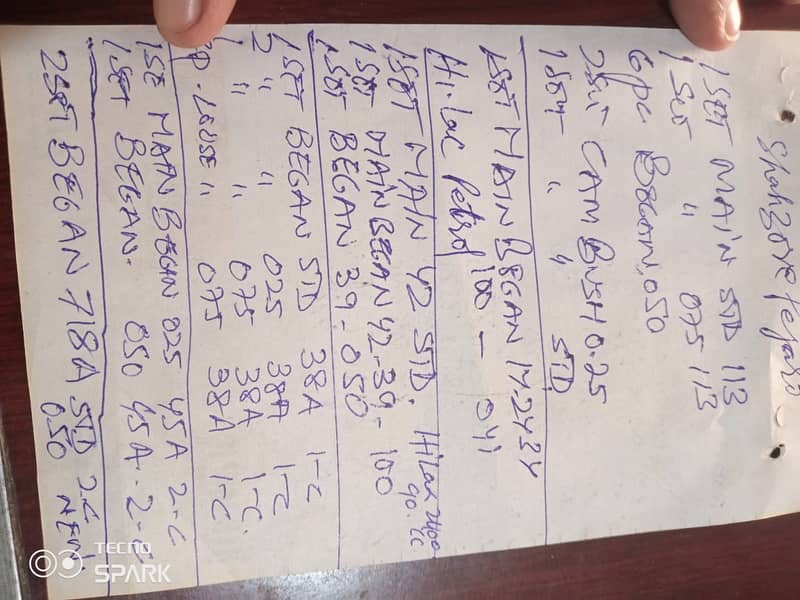 Shahzore
1 SET MAIN STD 113
1 SET " 075 113
6 pc BEGAN 050
2 SET CAM BUSH 0.25
1 SET " " STD
1 SET MAIN BEGAN 17-2434
Hi-lac Petrol 100 — 041
1 SET MAIN 42 STD. Hilux 2400
1 SET MAIN BEGAN 42-39-100
1 SET BEGAN 39-050
1 SET BEGAN STD 38A 1-C
2 " " 025 38A 1-C
1 " " 075 38A 1-C
" 075 38A 1-C
1 SE MAIN BEGAN 025 45A 2-C
1 SET BEGAN. 050 45A-2-C
2 SET BEGAN 718A STD 2C
050 NEW
TECNO
SPARK